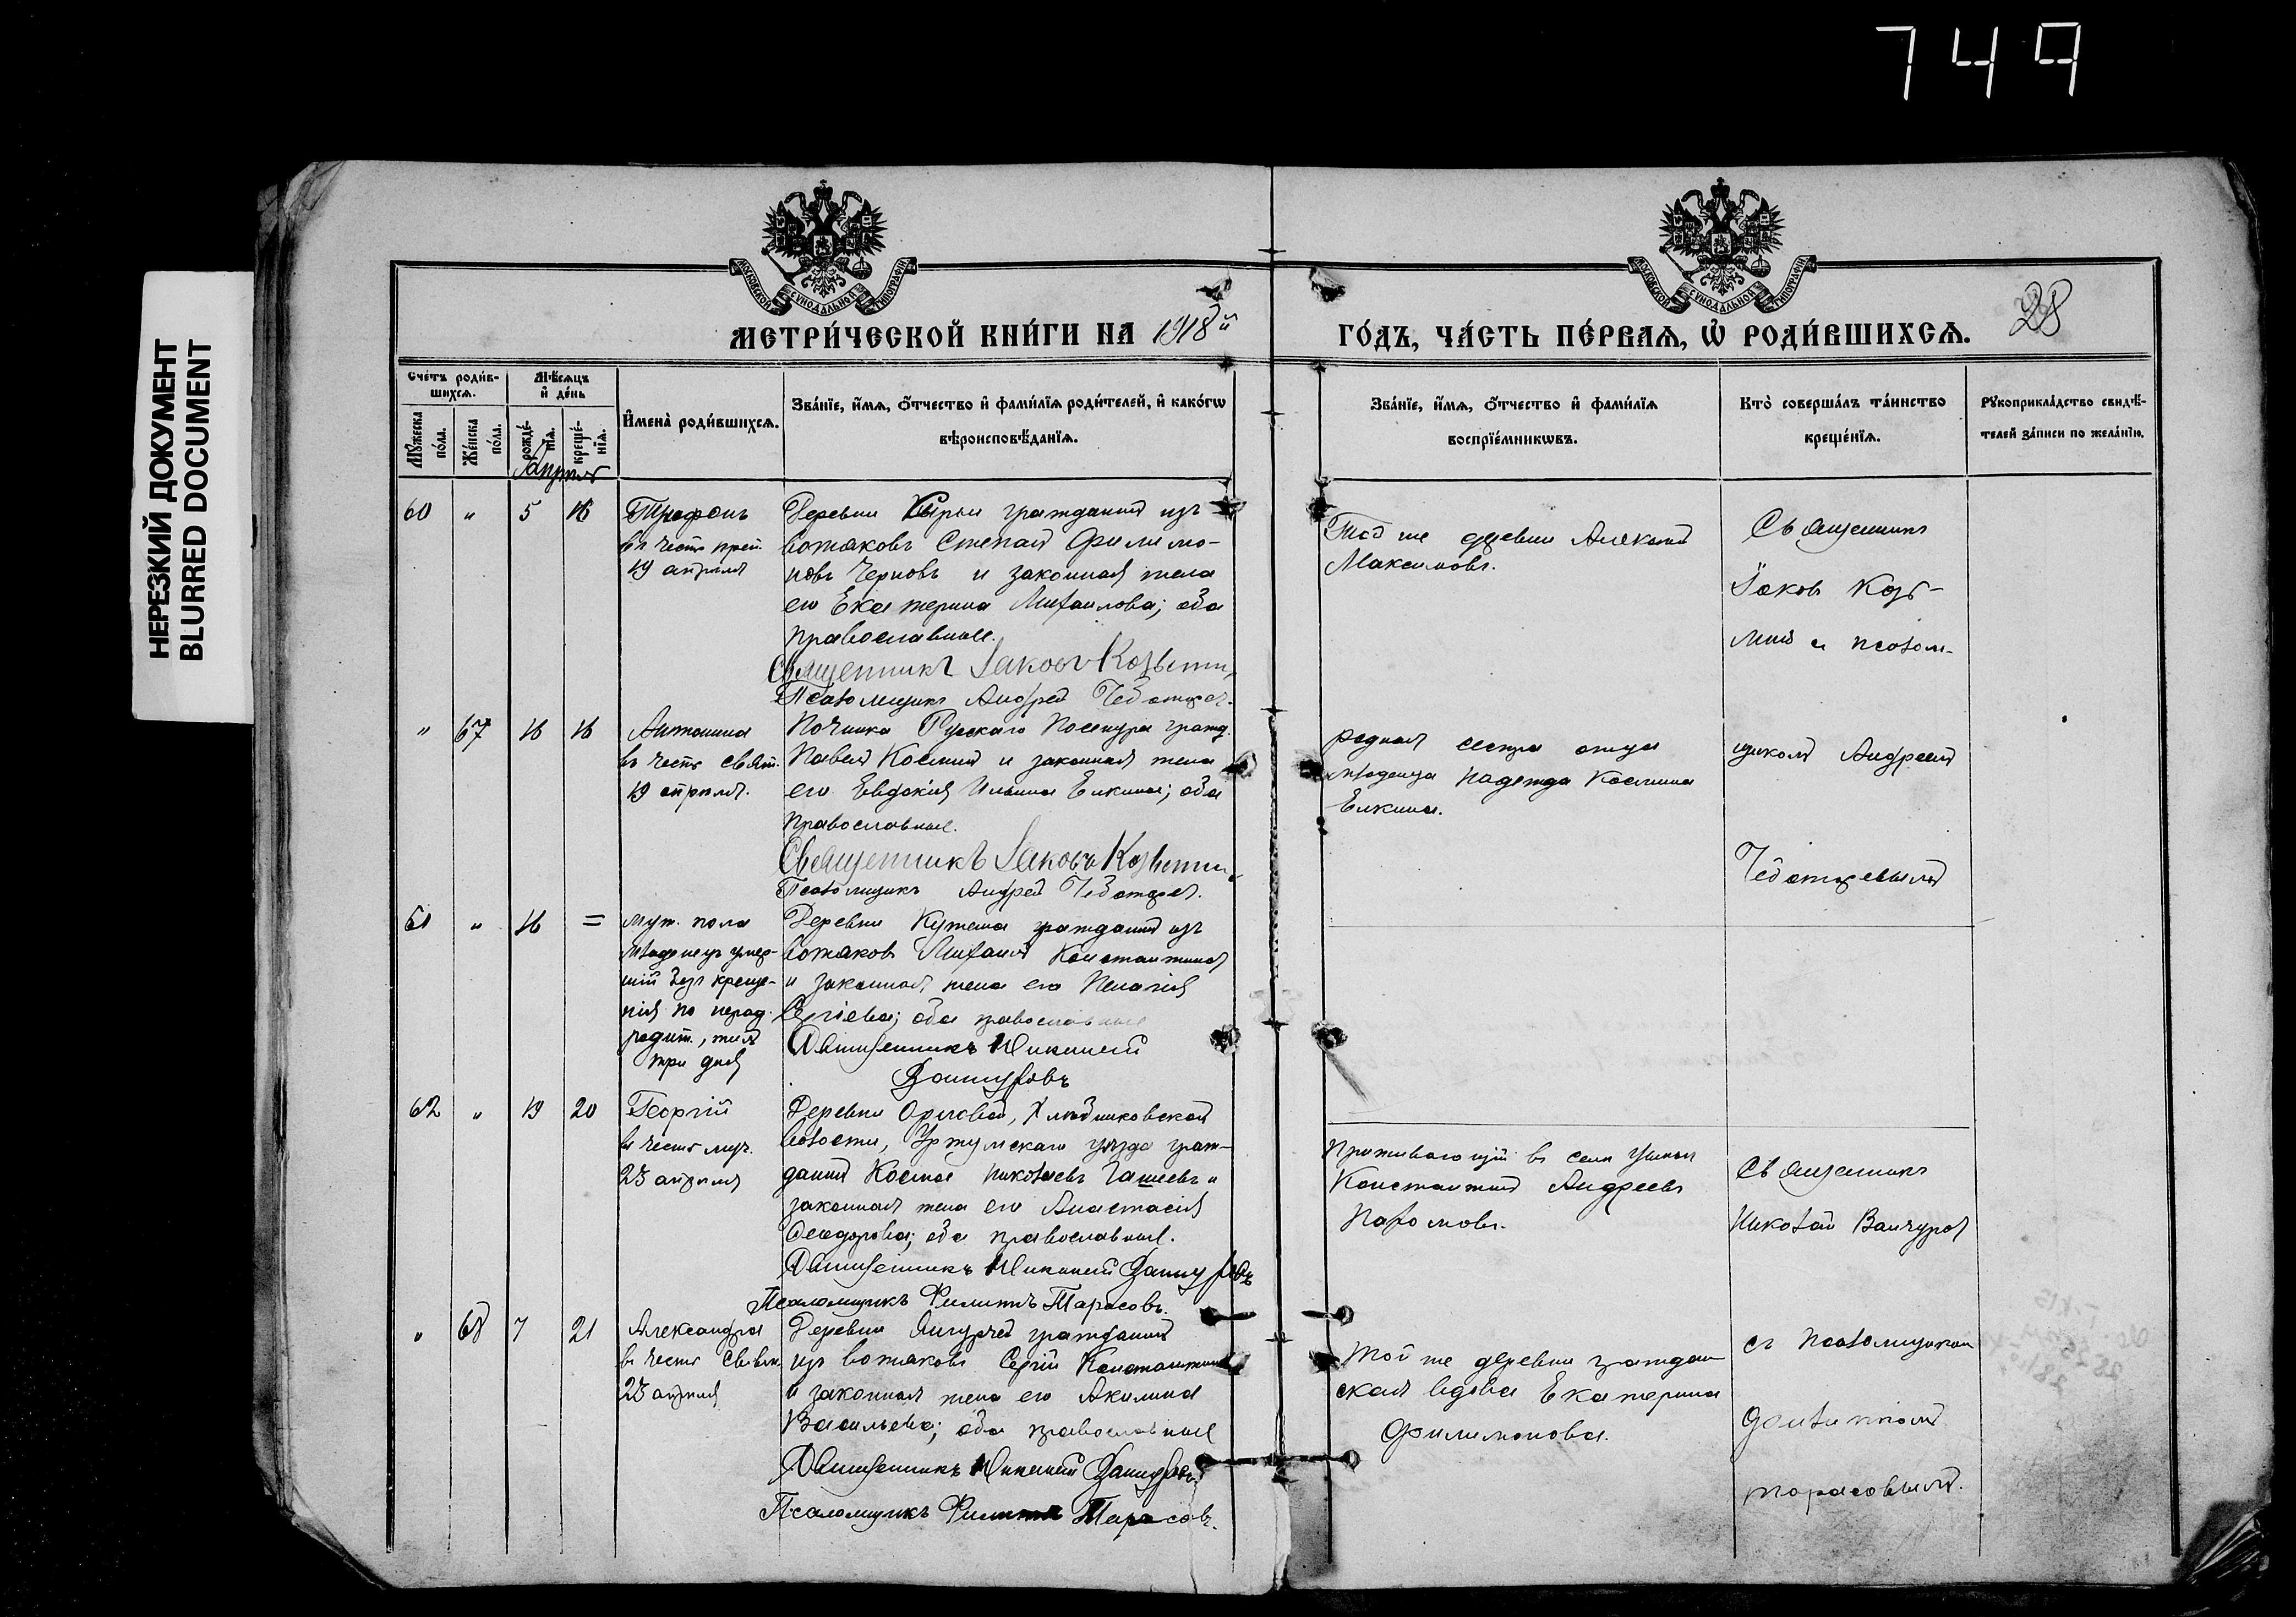 749
НЕРЕЗКИЙ ДОКУМЕНТ
BLURRED DOCUMENT
МОСКОВСКОЙ СУНОДАЛЬНОЙ ТИПОГРАФІИ
МОСКОВСКОЙ СУНОДАЛЬНОЙ ТИПОГРАФІИ
МЕТРИ́ЧЕСКОЙ КНИ́ГИ НА 1918й
ГО́ДЪ, ЧА́СТЬ ПЕ́РВАѦ, Ѽ РОДИ́ВШИХСѦ.
28
Сче́тъ роди́в-
шихсѧ.
Мѣ́сѧцъ
и҆ де́нь
Мꙋ́жеска
по́ла.
Же́нска
по́ла.
рожде́-
нїѧ.
креще́-
нїѧ.
И҆мена̀ роди́вшихсѧ.
Зва́нїе, и҆́мѧ, ѻ҆́тчество и҆ фами́лїѧ роди́телей, и҆ како́гѡ
вѣроисповѣ́данїѧ.
Зва́нїе, и҆́мѧ, ѻ҆́тчество и҆ фами́лїѧ
воспрїе́мникѡвъ.
Кто̀ соверша́лъ та́инство
креще́нїѧ.
Рꙋкоприкла́дство свидѣ́-
телей за́писи по жела́нїю.
60 " 5 16
Трифонъ
въ честь преп.
19 апрѣля
Деревни гражданинъ изъ
вотяковъ Степанъ Филимо-
новъ Черновъ и законная жена
его Екатерина Михаилова; оба
православные.
Священникъ Іаковъ Козьминъ
Псаломщикъ Андрей Чеботарев.
Той же деревни Алексѣй
Максимовъ.
Священникъ
Іаковъ Козь-
минъ и псалом-
" 67 16 16
Антонина
въ честь свят.
19 апрѣля.
Починка Русскаго гражд.
Павелъ Космин и законная жена
его Евдокія Ильина Елкины; оба
православные.
Священникъ Іаковъ Козьминъ
Псаломщикъ Андрей Чеботарев.
родная сестра отца
младенца Надежда Космина
Елкина.
щикомъ Андреемъ
Чеботаревымъ
61 " 16 =
муж. пола
младенецъ умер-
шій безъ креще-
нія по нерад.
родит., жилъ
три дня
Деревни гражданинъ изъ
вотяковъ Михаилъ Константинов
и законная жена его Пелагія
Сергіева; оба православные
Священникъ Николай
Ванчуровъ
62 " 19 20
Георгій
въ честь муч.
23 апрѣля
Деревни Орловой, Хлѣбниковской
волости, Уржумскаго уѣзда граж-
данинъ Косма Николаевъ и
законная жена его Анастасія
Феодорова; оба православные.
Священникъ Николай Ванчуровъ
Псаломщикъ Филиппъ Тарасовъ.
Проживающій въ селѣ
Константинъ Андреевъ
Пахомовъ.
Священникъ
Николай Ванчуров
" 68 7 21
Александра
въ честь
23 апрѣля
Деревни гражданинъ
изъ вотяковъ Сергій Константинов
и законная жена его Акилина
Васильева; оба православные
Священникъ Николай Ванчуровъ
Псаломщикъ Филиппъ Тарасовъ.
той же деревни граждан-
ская вдова Екатерина
Филимонова.
съ псаломщикомъ
Филиппомъ
Тарасовымъ.